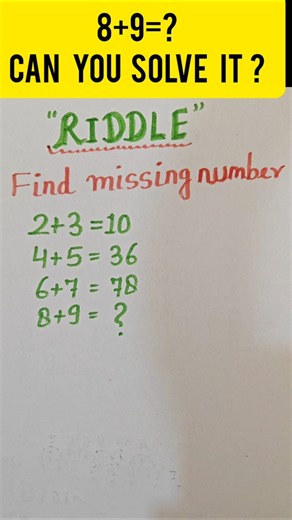 8+9=?
CAN YOU SOLVE IT ?
"RIDDLE"
Find missing number
2+3=10
4+5=36
6+7=78
8+9=?